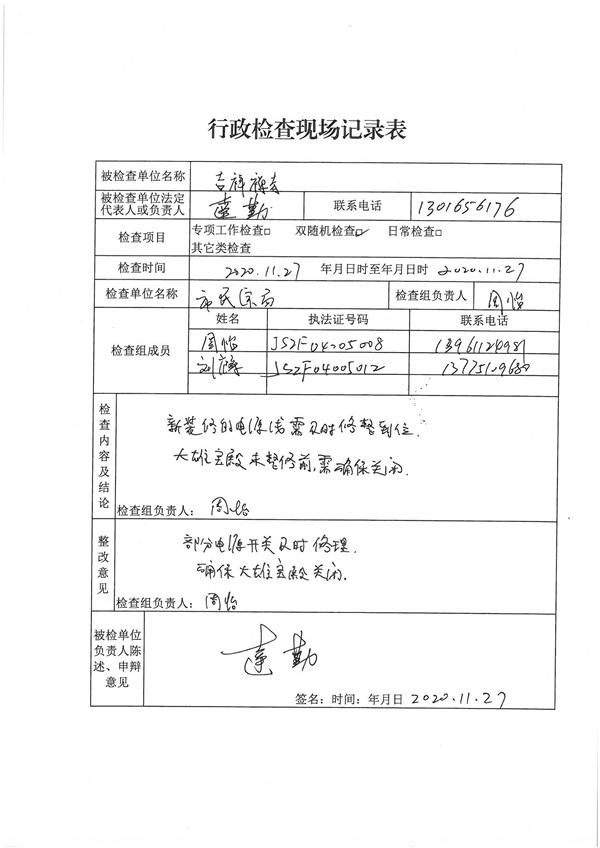 行政检查现场记录表
被检查单位名称 吉祥禅寺
被检查单位法定代表人或负责人 达勤 联系电话 1301656176
检查项目 专项工作检查□ 双随机检查☑ 日常检查□
其它类检查
检查时间 2020.11.27 年月日时至年月日时 2020.11.27
检查单位名称 市民宗局 检查组负责人 周怡
检查组成员 姓名 执法证号码 联系电话
周怡 JSZF04005008 13961124981
刘 JSZF04005012 13775109680
检查内容及结论
新装修的电源线需及时修整到位.
大雄宝殿未整修前,需确保关闭.
检查组负责人: 周怡
整改意见
部分电源开关及时修理.
确保大雄宝殿关闭.
检查组负责人: 周怡
被检单位负责人陈述、申辩意见
达勤
签名: 时间: 年月日 2020.11.27